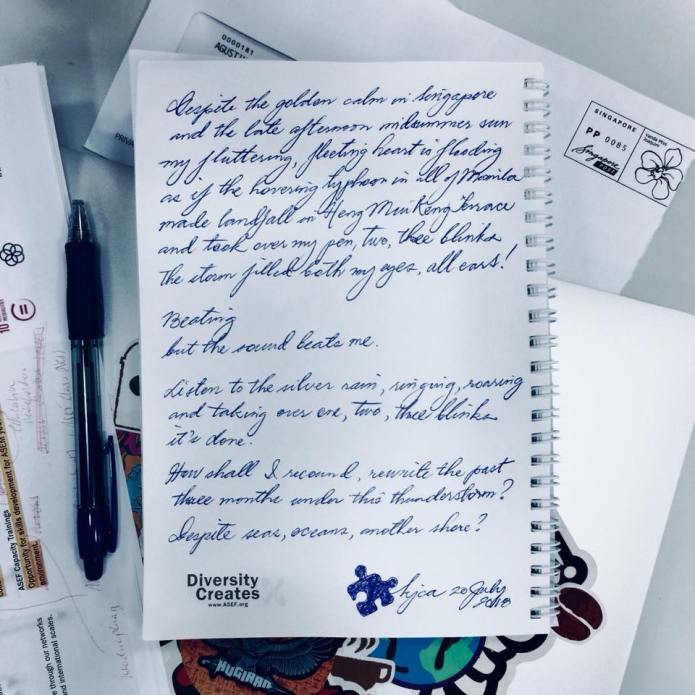 0000181
AGUSTI
PRIVA
SINGAPORE
PP 0085
Singapore
Vanda Miss
Joaquim
Despite the golden calm in Singapore
and the late afternoon midsummer sun
my fluttering, fleeting heart is flooding
as if the hovering typhoon in all of Manila
made landfall in Heng Mui Keng Terrace
and took over my pen, two, three blinks
the storm filled both my eyes, all ears!
Beating
but the sound beats me.
Listen to the silver rain, singing, roaring
and taking over one, two, three blinks
it's done.
How shall I recound, rewrite the past
three months under this thunderstorm?
Despite seas, oceans, another shore?
Diversity
Creates
www.ASEF.org
hjca 20 July
2018
ASEF Capacity Trainings
Opportunity for skills development for ASEM
environment.
through our networks
and international scales.
HUGIRAN